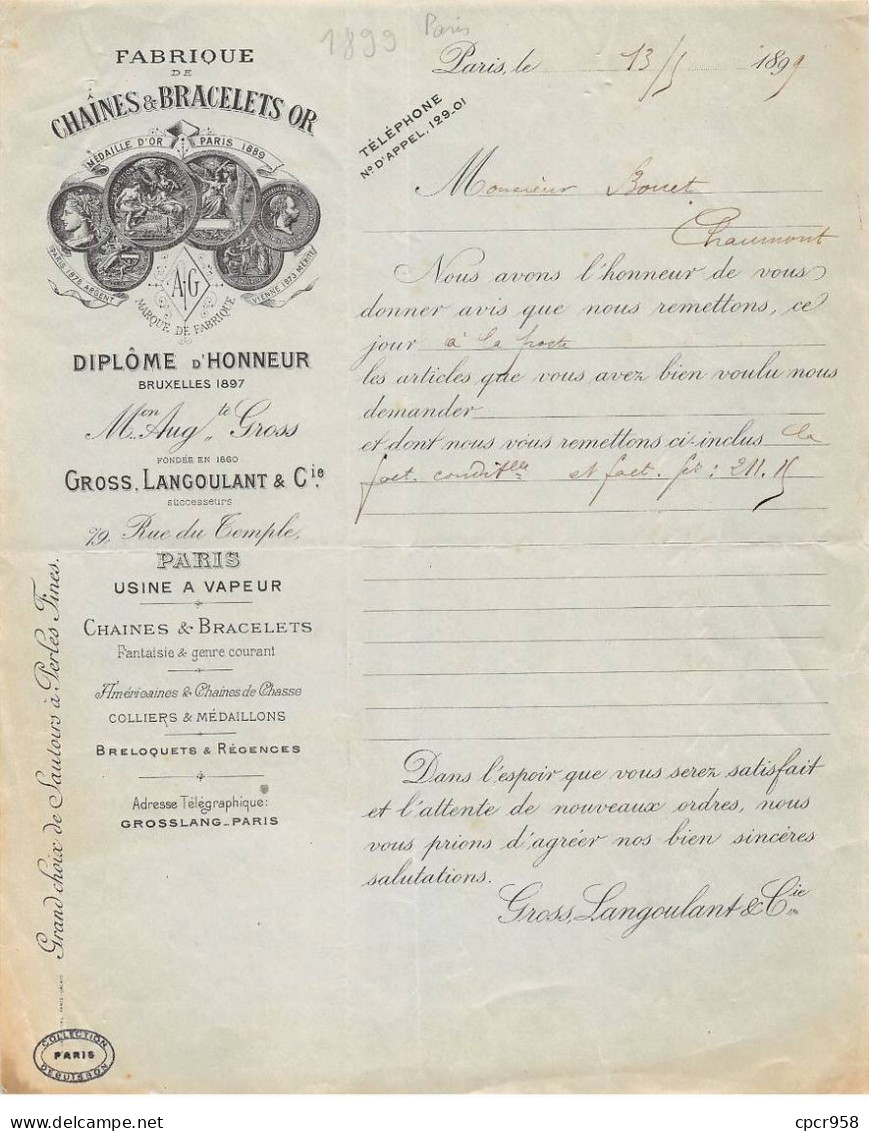 1899 Paris
FABRIQUE
DE
CHAÎNES & BRACELETS OR
MÉDAILLE D'OR PARIS 1889
PARIS 1878 ARGENT
VIENNE 1873 MÉRITE
A.G
MARQUE DE FABRIQUE
DIPLÔME D'HONNEUR
BRUXELLES 1897
Mon Augte Gross
FONDÉE EN 1860
GROSS, LANGOULANT & Cie.
successeurs
79, Rue du Temple,
PARIS
USINE A VAPEUR
CHAINES & BRACELETS
Fantaisie & genre courant
Américaines & Chaines de Chasse
COLLIERS & MÉDAILLONS
BRELOQUETS & RÉGENCES
Adresse Télégraphique:
GROSSLANG_PARIS
Grand choix de Sautoirs à Perles Fines.
COLLECTION
PARIS
Paris, le 13/5 1899
TÉLÉPHONE
No D'APPEL, 129-01
Monsieur Bouet
Chaumont
Nous avons l'honneur de vous
donner avis que nous remettons, ce
jour à la poste
les articles que vous avez bien voulu nous
demander
et dont nous vous remettons ci-inclus la
fact. conditlle et fact. fr: 211.15
Dans l'espoir que vous serez satisfait
et l'attente de nouveaux ordres, nous
vous prions d'agréer nos bien sincères
salutations.
Gross, Langoulant & Cie
cpcr958